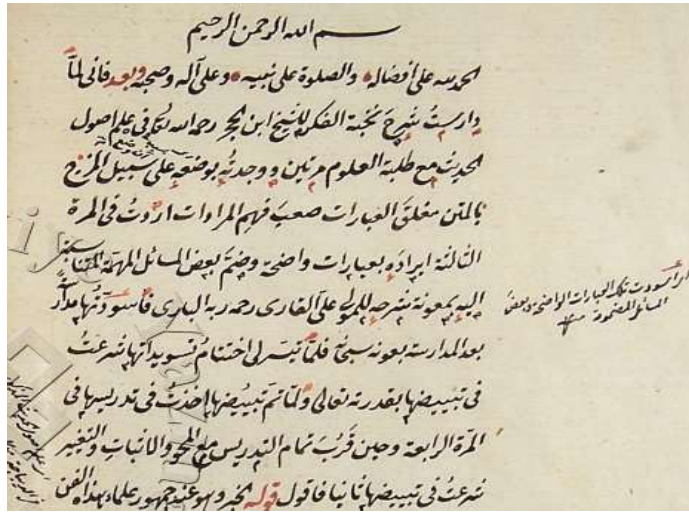 بسم الله الرحمن الرحيم
الحمد لله على افضاله والصلوة على نبيه وعلى آله وصحبه وبعد فانى لما
دارست شرح نخبة الفكر للشيخ ابن الحجر رحمه الله فى علم اصول
الحديث مع طلبة العلوم مرتين ووجدته بوضعه على سبيل المزج
بالمتن مغلق العبارات صعب فهم المرادات اردت فى المرة
الثالثة ايراده بعبارات واضحة وضم بعض المسائل المهمة المناسبة
اليه بمعونة شرحه للمولى على القارى رحمه ربه البارى فاسودتها مدار
بعد المدارسة بعونه سبحانه فلما تيسر لى اختتام تسويداتها شرعت
فى تبييضها بقدرته تعالى ولما تم تبييضها اخذت فى تدريسها فى
المرة الرابعة وحين قرب تمام التدريس مع المحو والاثبات والتغيير
شرعت فى تبييضها ثانيا فاقول قوله الخبر وهو عند جمهور علماء هذا الفن
اسودت تلك العبارات الواضحة وبعض
المسائل المضمومة منه